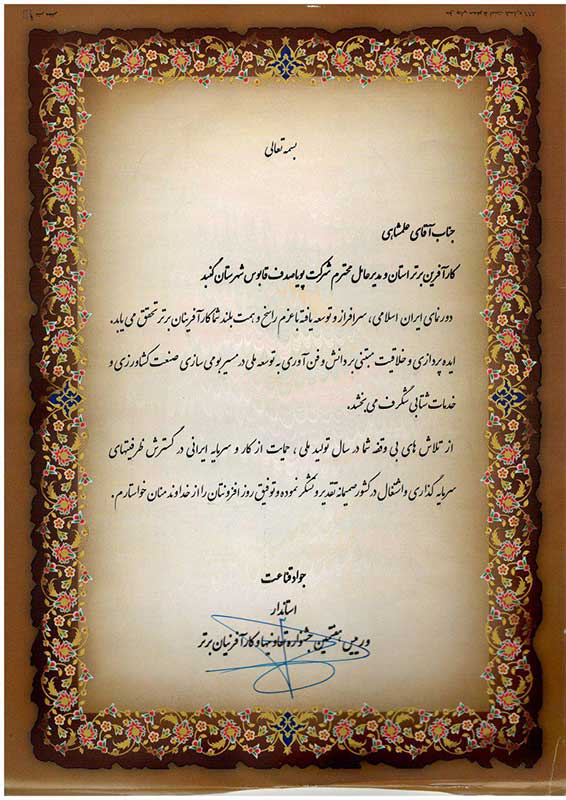 بسمه تعالی
جناب آقای علمشاهی
کارآفرین برتر استان و مدیرعامل محترم شرکت پویا صدف قابوس شهرستان گنبد
دورنمای ایران اسلامی، سرافراز و توسعه یافته با عزم راسخ و همت بلند شما کارآفرینان برتر تحقق می یابد.
ایده پردازی و خلاقیت مبتنی بر دانش و فن آوری به توسعه ملی در مسیر بومی سازی صنعت کشاورزی و
خدمات شتابی شگرف می بخشد.
از تلاش های بی وقفه شما در سال تولید ملی ، حمایت از کار و سرمایه ایرانی در گسترش ظرفیتهای
سرمایه گذاری و اشتغال در کشور صمیمانه تقدیر و تشکر نموده و توفیق روز افزونتان را از خداوند منان خواستارم.
جواد قناعت
استاندار
و رییس هفتمین جشنواره تعاونیها و کارآفرینان برتر